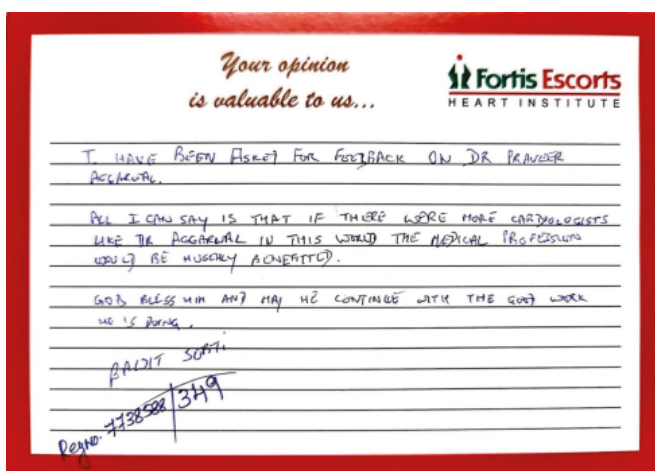 Your opinion
is valuable to us...
Fortis Escorts
HEART INSTITUTE
I HAVE BEEN ASKED FOR FEEDBACK ON DR PRAVEER
AGGARWAL.
ALL I CAN SAY IS THAT IF THERE WERE MORE CARDIOLOGISTS
LIKE DR AGGARWAL IN THIS WORLD THE MEDICAL PROFESSION
WOULD BE HUGHLY BENEFITTED.
GOD BLESS HIM AND MAY HE CONTINUE WITH THE GOOD WORK
HE IS DOING.
Regno. 7738588/349